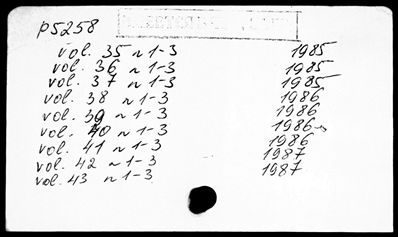 P5258
vol. 35 n 1-3 1985
vol. 36 n 1-3 1985
vol. 37 n 1-3 1985
vol. 38 n 1-3 1986
vol. 39 n 1-3 1986
vol. 40 n 1-3 1986
vol. 41 n 1-3 1986
vol. 42 n 1-3 1987
vol. 43 n 1-3 1987